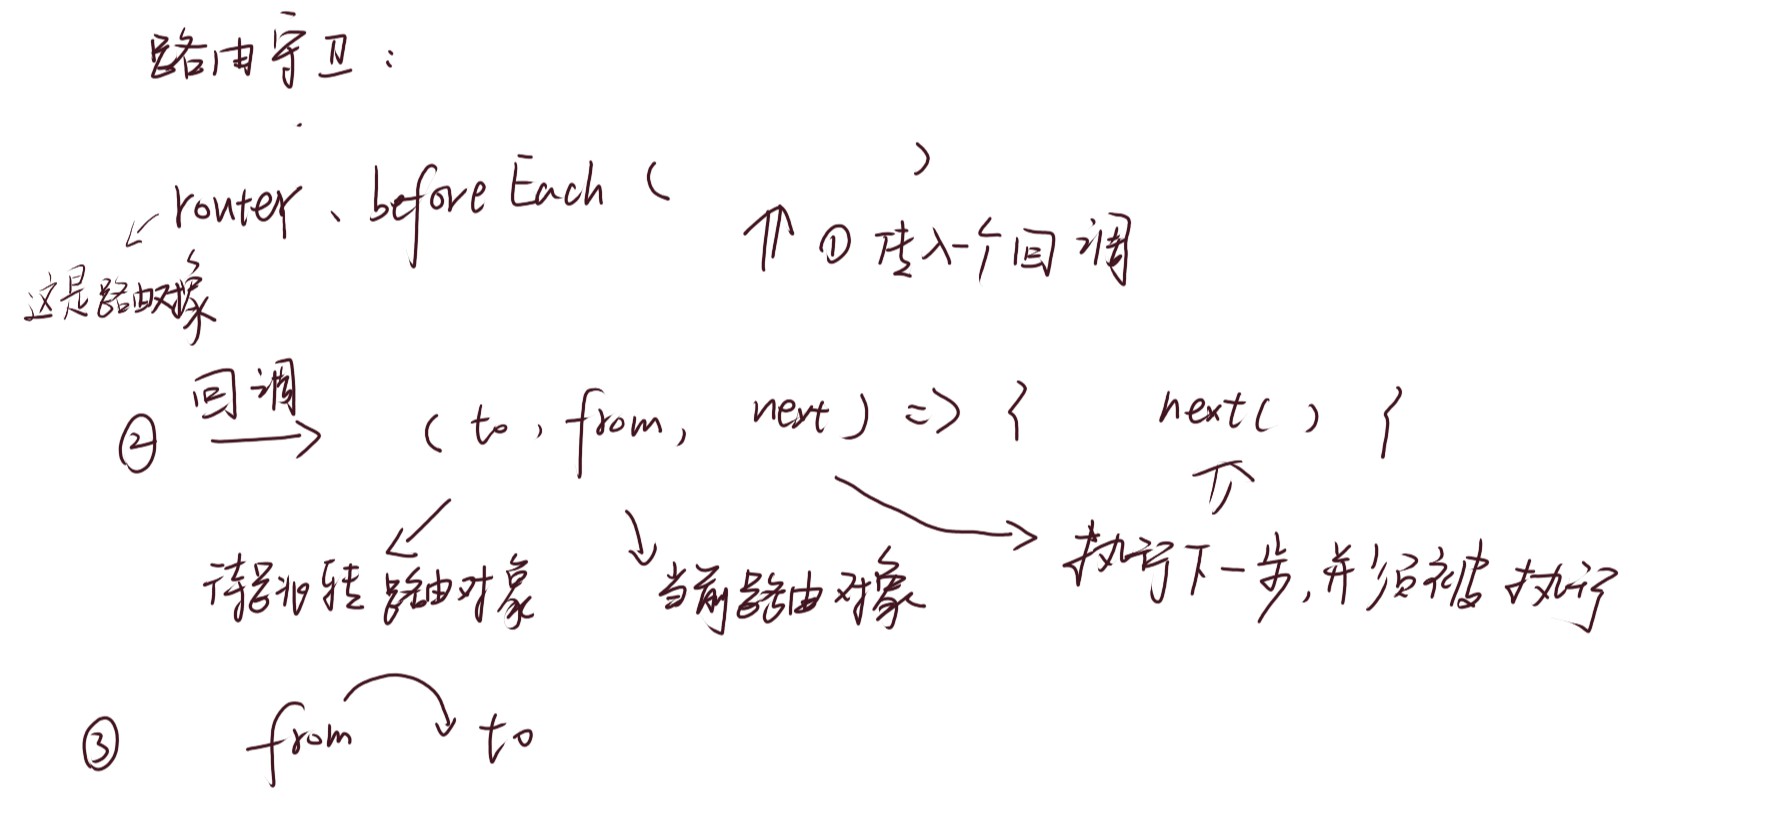 路由守卫：
router、beforeEach（ ）
① 传入一个回调
这是路由对象
② 回调 (to, from, next) => { next() {
待跳转路由对象 当前路由对象 执行下一步,并须被执行
③ from to